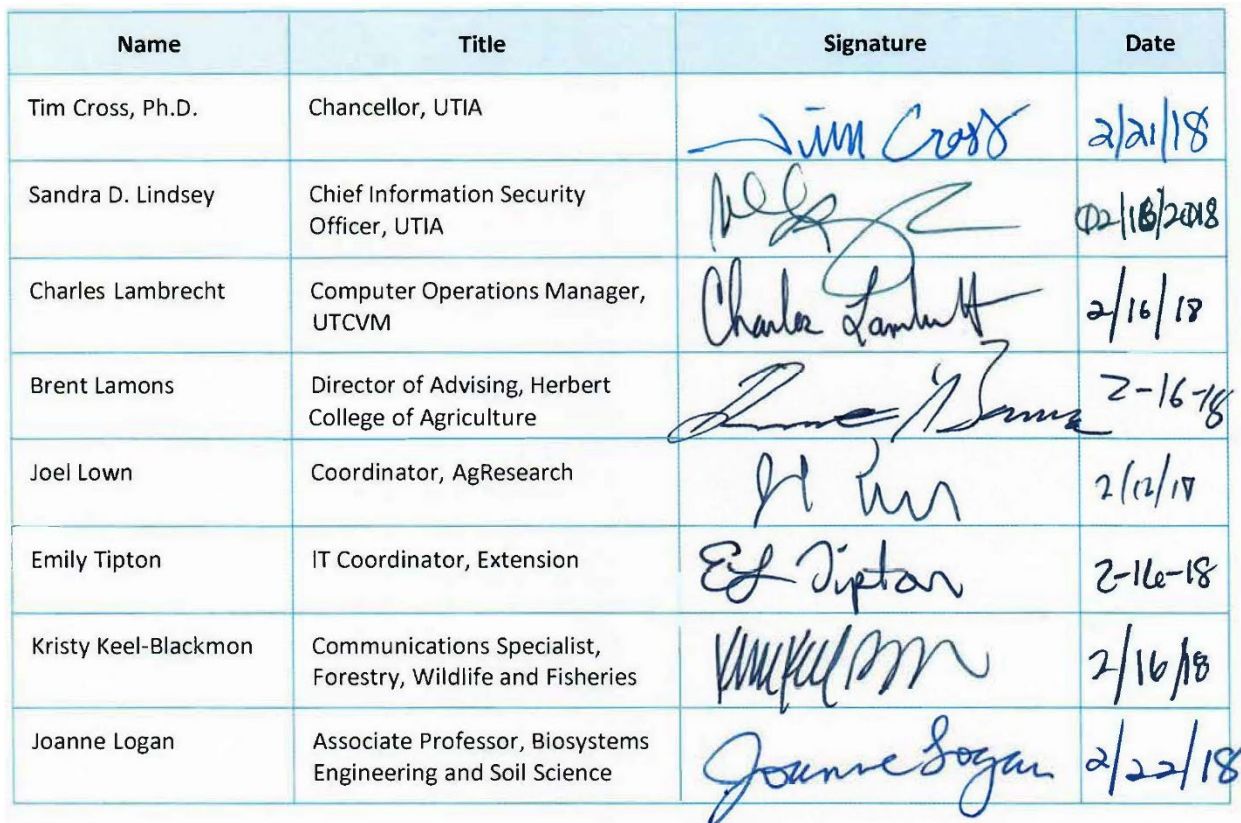 Name Title Signature Date
Tim Cross, Ph.D. Chancellor, UTIA Tim Cross 2/21/18
Sandra D. Lindsey Chief Information Security
Officer, UTIA
Charles Lambrecht Computer Operations Manager,
UTCVM Charles 2/16/18
Brent Lamons Director of Advising, Herbert 2-16-18
College of Agriculture
Joel Lown Coordinator, AgResearch
Emily Tipton IT Coordinator, Extension Tipton 2-16-18
Kristy Keel-Blackmon Communications Specialist,
Forestry, Wildlife and Fisheries 2/16/18
Joanne Logan Associate Professor, Biosystems
Engineering and Soil Science Joanne Logan 2/22/18